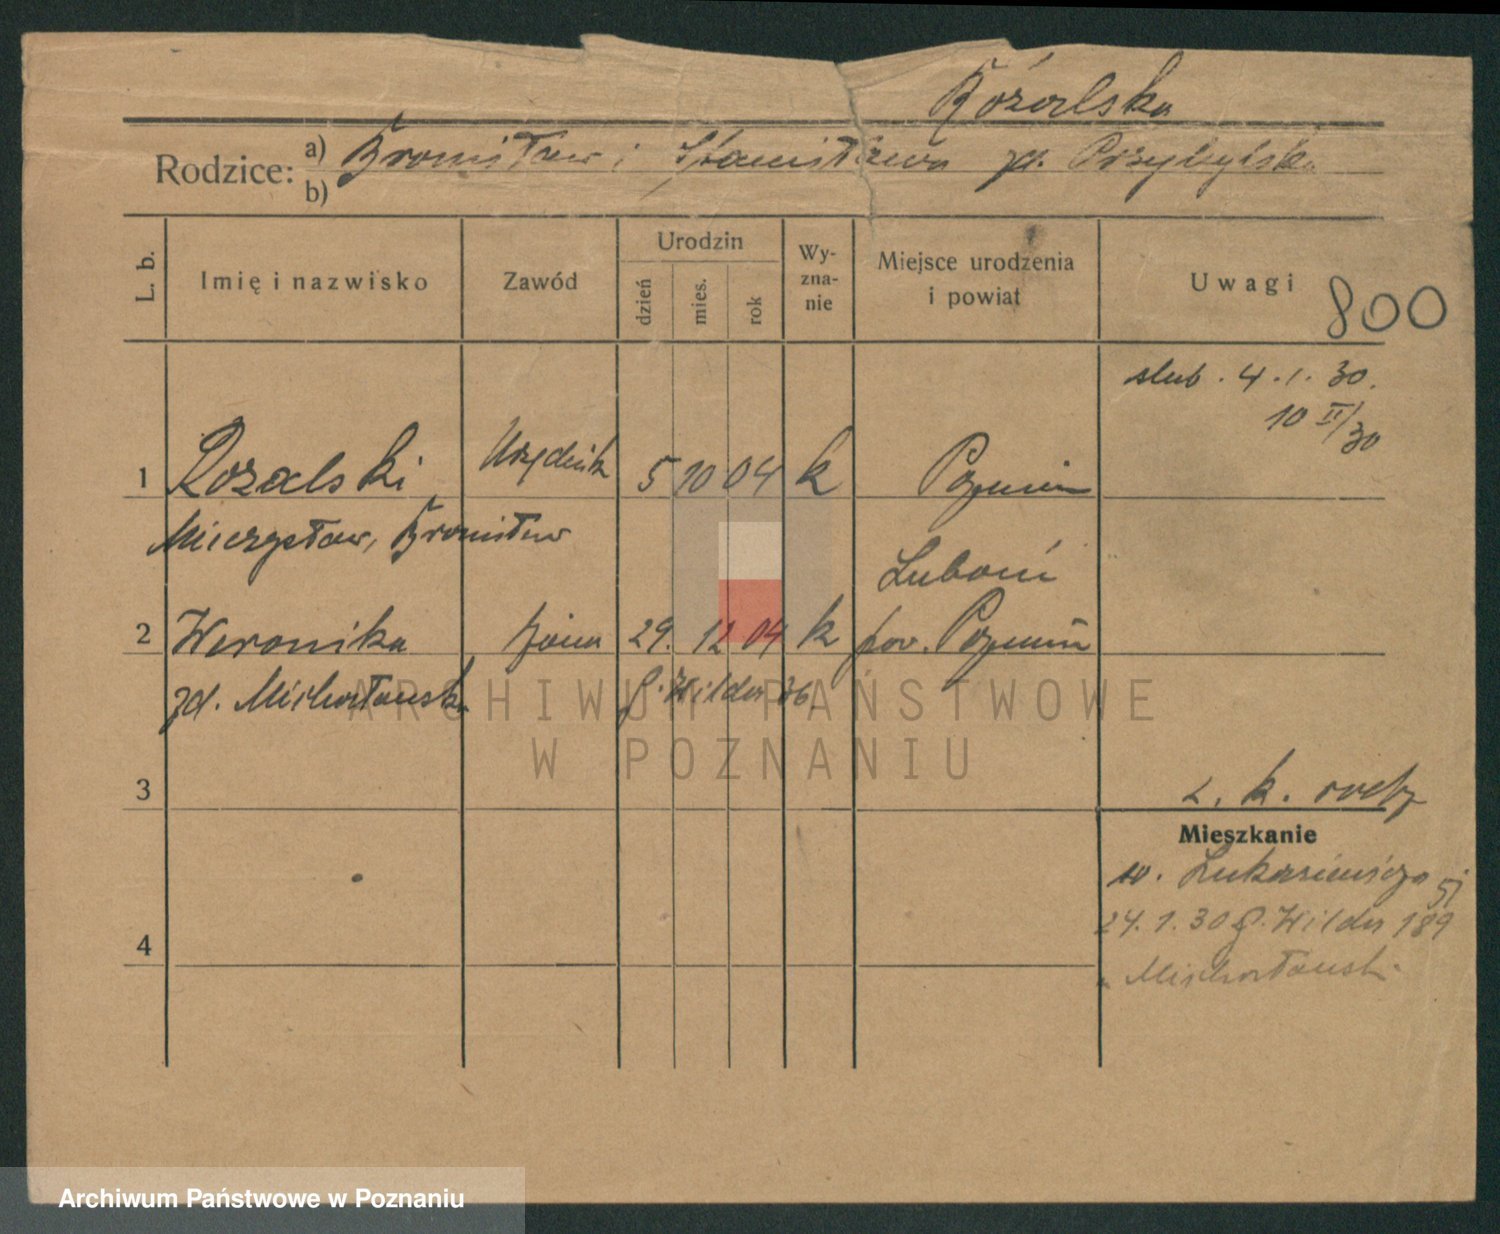 Rozalska
Rodzice: a) Bronisław i Stanisława zd. Przybylska
b)
L. b.
Imię i nazwisko
Zawód
Urodzin
dzień
mies.
rok
Wy-
zna-
nie
Miejsce urodzenia
i powiat
Uwagi
800
slub. 4.1.30.
10 II/30
1 Rozalski Urzędnik 5 10 04 k Poznań
Mieczysław, Bronisław
Luboń
2 Weronika żona 29. 12 04 k pow. Poznań
zd. Michałowsk.
G. Wilda 36.
3
Mieszkanie
w. Łukasiewicza
4
24.1.30 G. Wilda 189
Michałowsk.
ARCHIWUM PAŃSTWOWE
W POZNANIU
Archiwum Państwowe w Poznaniu